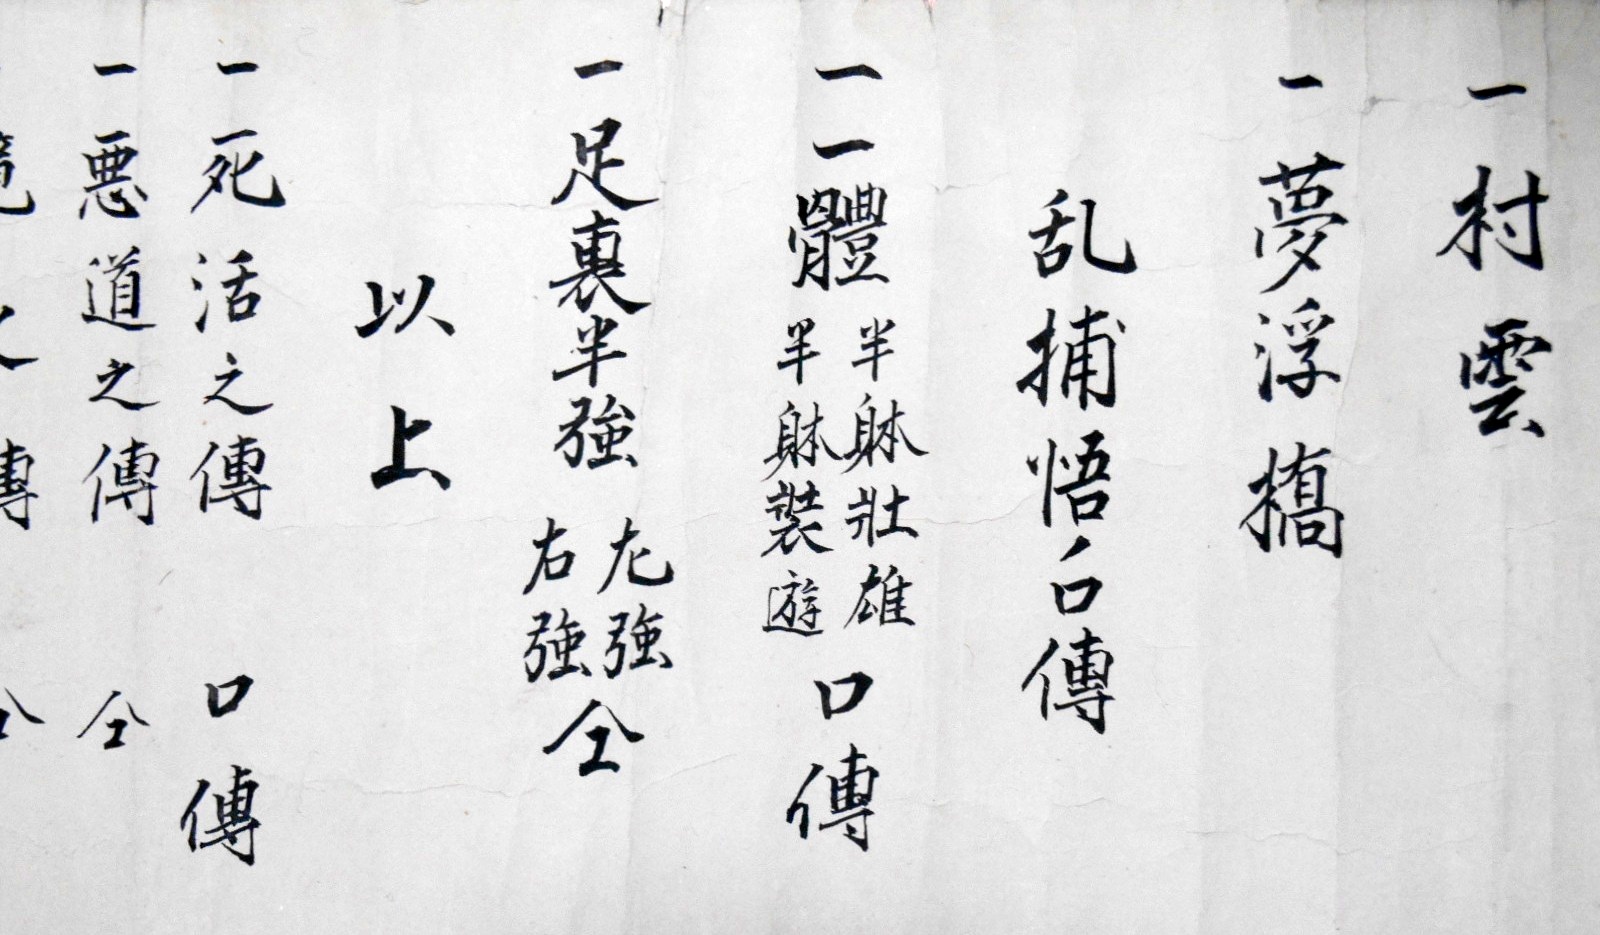 一 村雲
一 夢浮橋
乱捕悟口傳
一 一體 半躰壯雄 半躰裝遊 口傳
一 足裏半強 左強 右強 仝
以上
一 死活之傳 口傳
一 悪道之傳 仝